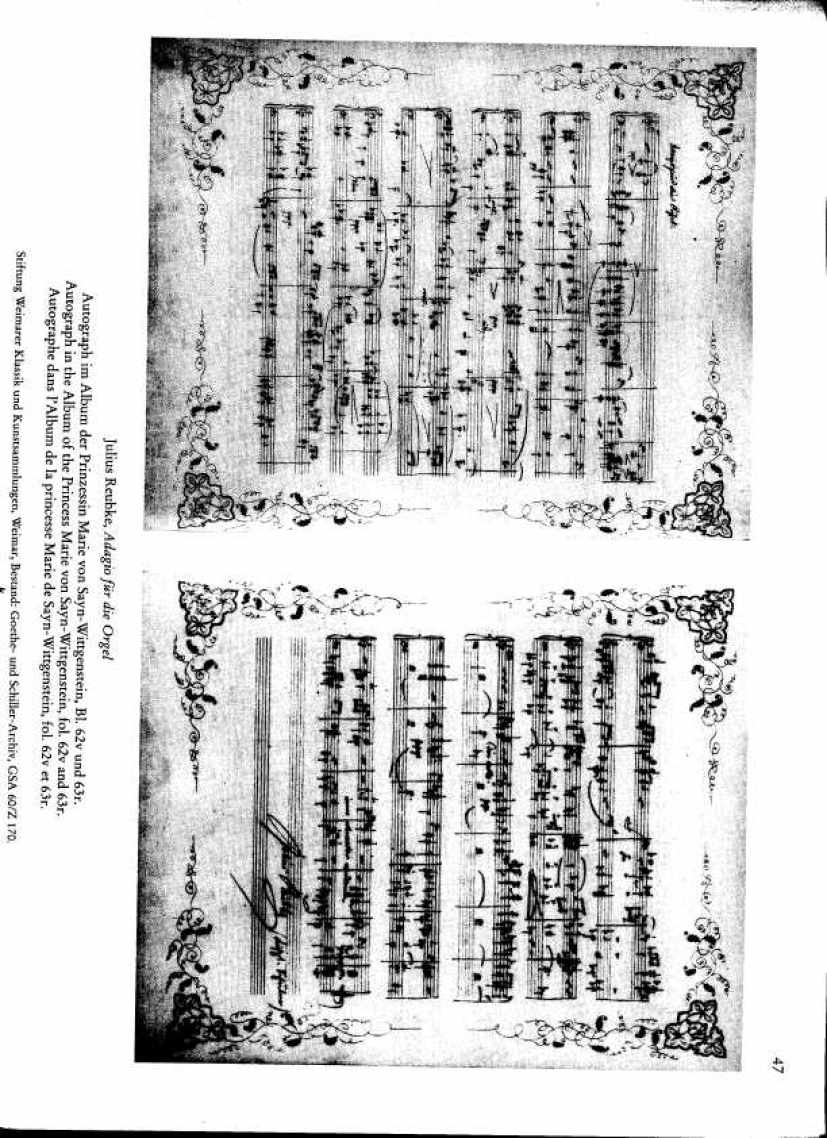 47
Julius Reubke, Adagio für die Orgel
Autograph im Album der Prinzessin Marie von Sayn-Wittgenstein, Bl. 62v und 63r.
Autograph in the Album of the Princess Marie von Sayn-Wittgenstein, fol. 62v and 63r.
Autographe dans l'Album de la princesse Marie de Sayn-Wittgenstein, fol. 62v et 63r.
Stiftung Weimarer Klassik und Kunstsammlungen, Weimar, Bestand: Goethe- und Schiller-Archiv, GSA 60/Z 170.